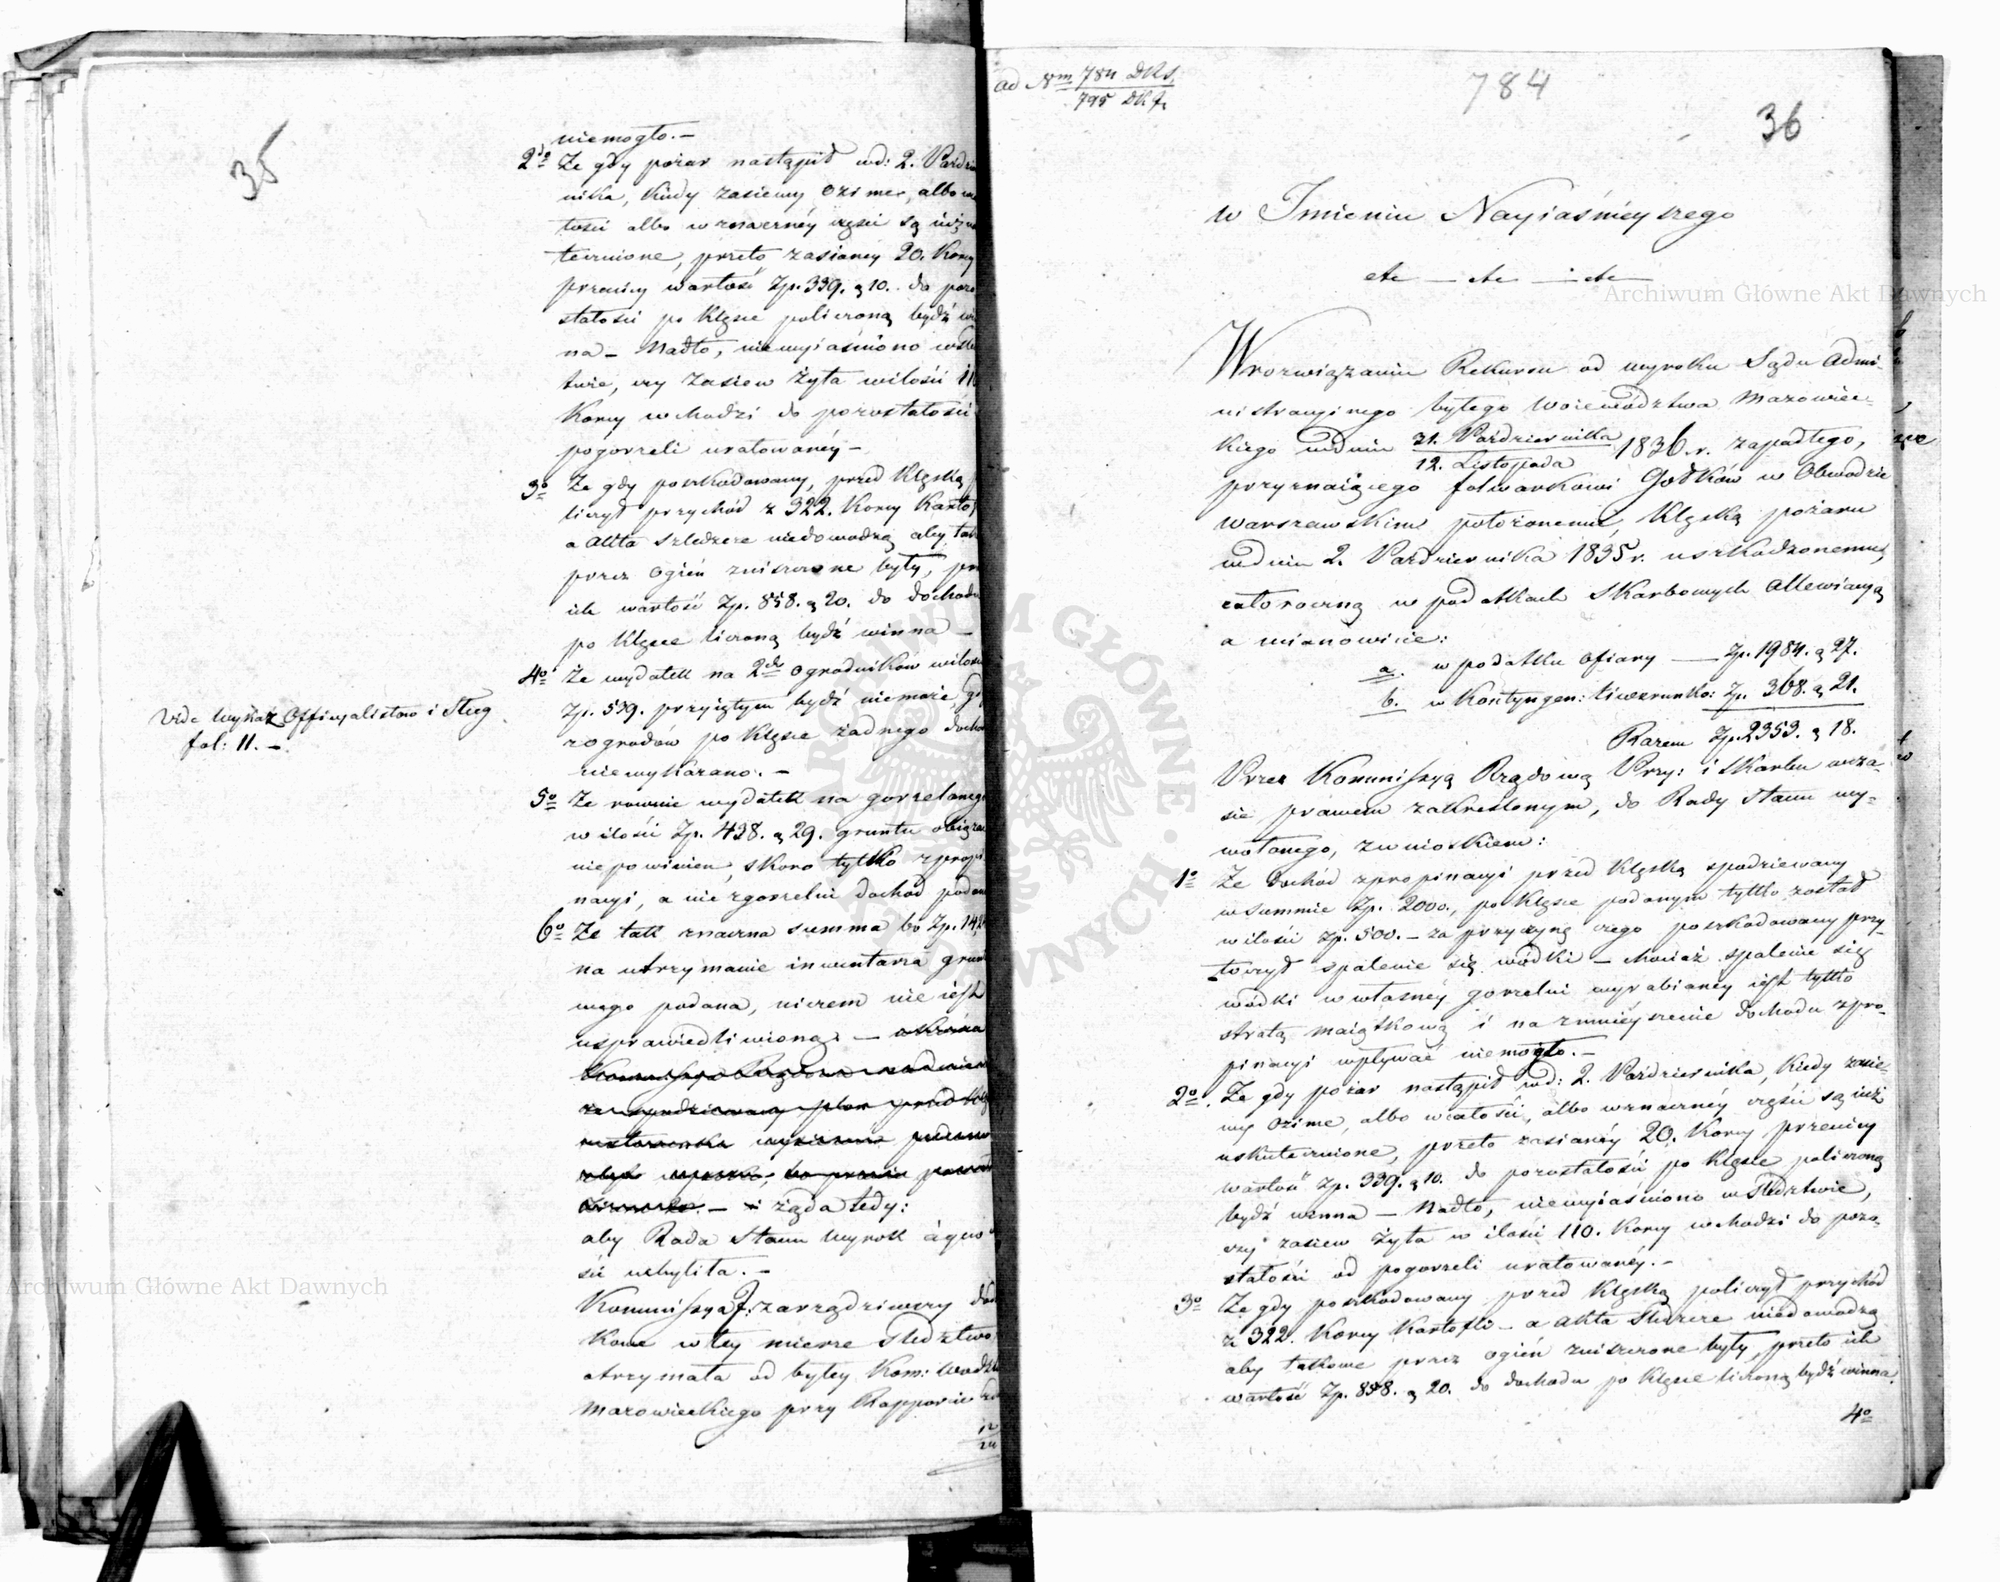 35
niemogło. –
2do Że gdy pożar nastąpił wd: 2. Paździer
nika, kiedy zasiewy ozime, albo w ca
łości albo w znaczney części są iuż us
tecznione, przeto zasianey 20. korcy
pszenicy wartość Zp. 339. g 10. do pozo
stałości po klęsce policzoną bydź wi
na – Nadto, niewyiaśniono w śle
twie, czy zasiew żyta w ilości 11
korcy wchodzi do pozostałości
pogorzeli uratowanéy –
3o Że gdy poszkodowany, przed klęską
liczył przychód z 322. korcy karto
a akta śledcze niedowodzą aby tak
przez ogień zniszczone były, prz
ich wartość Zp. 858. g 20. do dochodu
po klęsce liczoną bydź winna –
4o Że wydatek na 2ch ogrodników w ilości
Zp. 539. przyiętym bydź niemoże gd
z ogrodów po klęsce żadnego docho
niewykazano. –
Vide Wykaz Officyalistow i Sług
fol: 11. –
5o Że rownie wydatek na gorzelanego
w ilości Zp. 438. g 29. gruntu obciąża
nie powinien, skoro tylko z propi
nacyi, a nie z gorzelni dochod podan
6o Że tak znaczna summa bo Zp. 14
na utrzymanie inwentarza grun
wego podana, niczem nie iest
usprawiedliwioną. –
– i żąda tedy:
aby Rada Stanu wyrok
uchyliła. –
Kommissya J: zarządziwszy dod
kowe w tey mierze śledztwo
otrzymała od byłey Kom: Woiewdz
Mazowieckiego przy Rapporcie
12
24
ad Nrm 784 DKS.
795 DKJ.
784
36
w Imieniu Nayiaśnieyszego
etc – etc – etc –
Archiwum Główne Akt Dawnych
W rozwiązaniu Rekursu od wyroku Sądu Admi-
nistracyinego byłego Woiewództwa Mazowiec-
kiego wdniu 31. Października / 12. Listopada 1836. r. zapadłego,
przyznaiącego folwarkowi Gołków w Obwodzie
Warszawskim położonemu, klęską pożaru
wdniu 2. Października 1835 r. uszkodzonemu,
całoroczną w podatkach Skarbowych allewiacyą
a mianowicie:
a. w podatku ofiary — Zp. 1984. g 27.
b. w kontyngen: liwerunko: Zp. 368. g 21.
Razem Zp. 2353. g 18.
Przez Kommissyą Rządową Przy: i Skarbu w cza-
sie prawem zakreślonym, do Rady Stanu wy-
wołanego, z wnioskiem:
1o Że dochód z propinacyi przed klęską spodziewany
w summie Zp. 2000., po klęsce podanym tylko został
w ilości Zp. 500. – za przyczynę czego poszkodowany przy-
toczył spalenie się wódki – chociaż spalenie się
wódki w własnéy gorzelni wyrabianey iest tylko
stratą maiątkową i na zmnieyszenie dochodu z pro-
pinacyi wpływać niemogło. –
2o. Że gdy pożar nastąpił wd: 2. Października, kiedy zasie-
wy ozime, albo w całości, albo w znacznéy części są iuż
uskutecznione, przeto zasianéy 20. korcy pszenicy
wartość Zp. 339. g 10. do pozostałości po klęsce policzoną
bydź winna – Nadto, niewyiaśniono w śledztwie,
czy zasiew żyta w ilości 110. korcy wchodzi do pozo-
stałości od pogorzeli uratowanéy. –
3o Że gdy poszkodowany przed klęską policzył przychód
z 322. korcy kartofli – a akta śledcze niedowodzą
aby takowe przez ogień zniszczone były, przeto ich
wartość Zp. 858. g 20. do dochodu po klęsce liczoną bydź winna.
4o
Archiwum Główne Akt Dawnych
ARCHIWUM GŁÓWNE AKT DAWNYCH